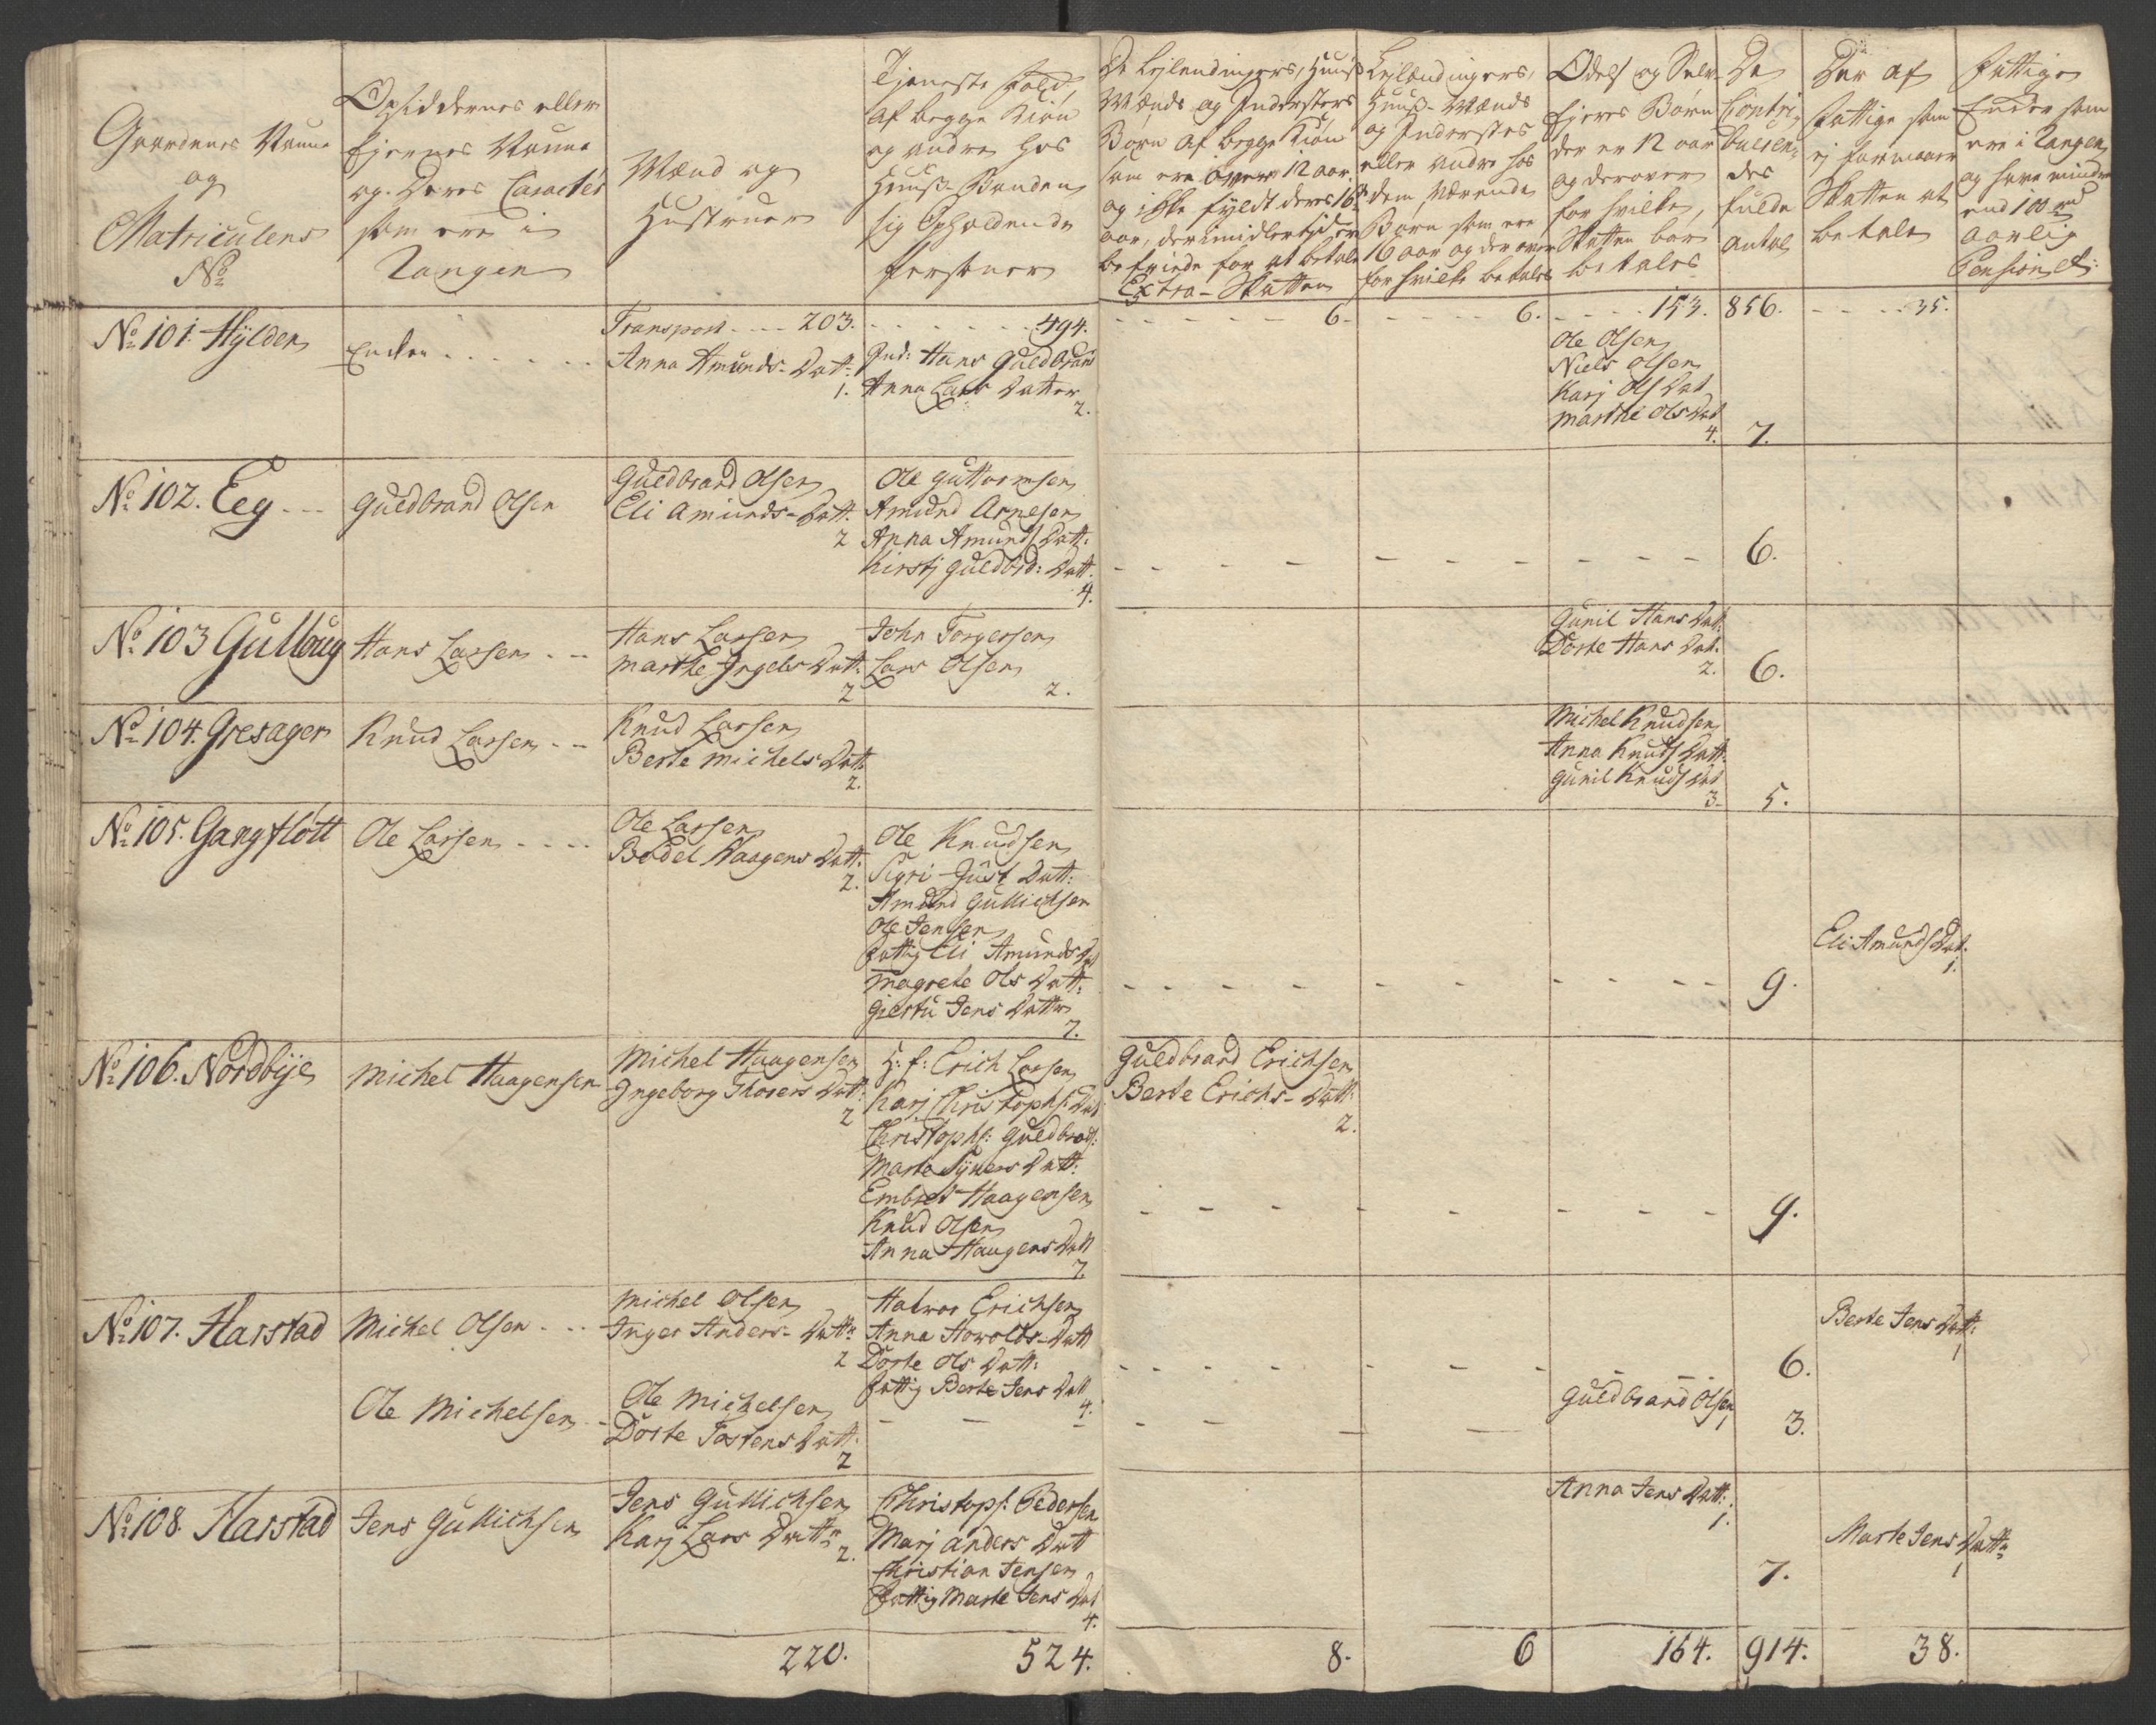 Gaardenes Navne
og
Matriculens
No
Opsiddernes eller
Ejernes Navne
og Deres Caracter
som ere i
Rangen
Mænd og
Hustruer
Tjeneste Folk
af begge Kiøn
og andre hos
Huus-Bonden
sig Opholdende
Personer
De Lejlændingers, Huus
Mænds og Indersters
Børn af begge Kiøn
som ere over 12 aar
og ikke fyldt deres 16de
aar, der imidlertid ere
befriede for at betale
Extra-Skatten
Lejlændingers,
Huus-Mænds
og Inderstes
eller andre hos
dem værende
Børn som ere
16 aar og derover
for hvilke betales
Odels og Selv-
Ejeres Børn
der er 12 aar
og derover
for hvilke,
Skatten bør
betales
De
Contri-
buerendes
fulde
Antal
Der af
Fattige som
ej formaaer
Skatten at
betale
Fattige
Enker som
ere i Rangen
og have mindre
end 100 rd
aarlig
Pension &:
Transport - - - 203. - - - - - - 494. - - - - - 6. - - - - 6. - - - - 153. 856. - - - - 35.
No 101. Hÿlden
Enken . . . . . . .
Anna Amunds-Datt:
1.
Ind: Hans Guldbrans
Anna Lars Datter
2.
Ole Olsen
Niels Olsen
Karj Ols Dat
Marthe Ols Dat
4.
7.
No 102. Eeg - - -
Guldbrand Olsen
Guldbrand Olsen
Eli Amunds-Datt.
2
Ole Guttormsen
Amund Arnesen
Anna Amunds Datt:
Kirstj Guldbrd: Datt.
4.
- - - - - - - - - -
6.
No 103 Gulbug
Hans Larsen . --
Hans Larsen
Marthe Ingebr Datt:
2
John Torgersen
Lars Olsen
2.
Gunil Hans Dat:
Dorte Hans Dat.
2.
6.
No 104. Gresager
Knud Larsen - -
Knud Larsen
Berte Michels Datt
2.
Michel Knudsen
Anna Knuds Datt:
Gunil Knuds Dat
3-
5.
No 105. Gangflott
Ole Larsen - - - -
Ole Larsen
Bodel Haagens Datt.
2.
Ole Knudsen
Sigri Just Datt:
Amund Gullichsen
Ole Jensen
fattig Eli Amunds Dat
Magrete Ols Datt:
Giertu Jens Datter
7.
- - - - - - - - - -
9.
Eli Amunds Dat.
1.
No 106. Nordbÿe
Michel Haagensen
Michel Haagensen
Ingeborg Thorers Dat:
2
H: f: Erich Larsen
Karj Christophs: Dat
Christophs: Guldbrads:
Marte Siuers Datt:
Embret Haagensen
Knud Olsen
Anna Haugens Datt
7.
Guldbrand Erichsen
Berte Erichs-Datt:
2.
- - - - - - - - -
9.
No 107. Harstad
Michel Olsen - - -
Michel Olsen
Inger Anders-Datter
2
Halvor Erichsen
Anna Howolds-Datt
Dorte Ols Datt:
fattig Berte Jens Datt
4.
- - - - - - - - - -
6.
Berte Jens Datt:
1
Ole Michelsen -
Ole Michelsen
Dorte Tostens Datt.
2
- - - - - - -
Guldbrand Olsen
1
3.
No 108. Harstad
Jens Gullichsen
Jens Gullichsen
Karj Lars Datter
2.
Christoph: Pedersen
Marj Anders Datt
Christian Jensen
fattig Marte Jens Dat
4.
Anna Jens Datt:
1.
7.
Marte Jens Datter
1
220. 524. 8. 6 164. 914. 38.